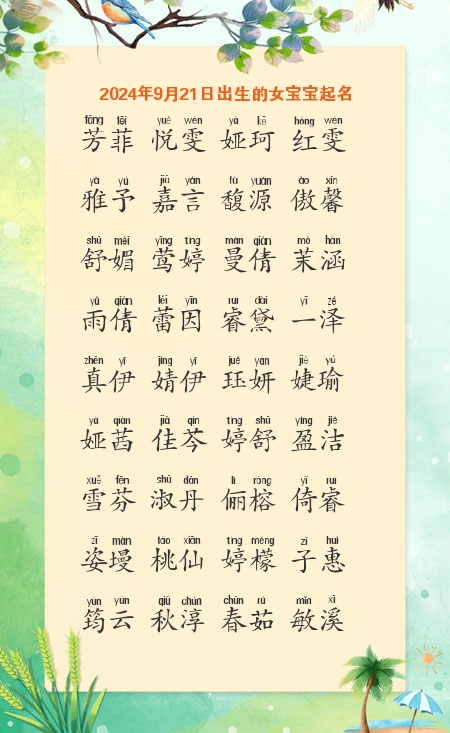 2024年9月21日出生的女宝宝起名
fāng fēi yuè wén yà kē hóng wén
芳菲 悦雯 娅珂 红雯
yǎ yú jiā yán fù yuán ào xīn
雅予 嘉言 馥源 傲馨
shū mèi yīng tíng màn qiàn mò hán
舒媚 莺婷 曼倩 茉涵
yǔ qiàn lěi yīn ruì dài yī zé
雨倩 蕾因 睿黛 一泽
zhēn yī jìng yī jué yán jié yú
真伊 婧伊 珏妍 婕瑜
yà qiàn jiā qín tíng shū yíng jié
娅茜 佳芩 婷舒 盈洁
xuě fēn shū dān lì róng yǐ ruì
雪芬 淑丹 俪榕 倚睿
zī màn táo xiān tíng méng zǐ huì
姿墁 桃仙 婷檬 子惠
yún yún qiū chún chūn rú mǐn xī
筠云 秋淳 春茹 敏溪